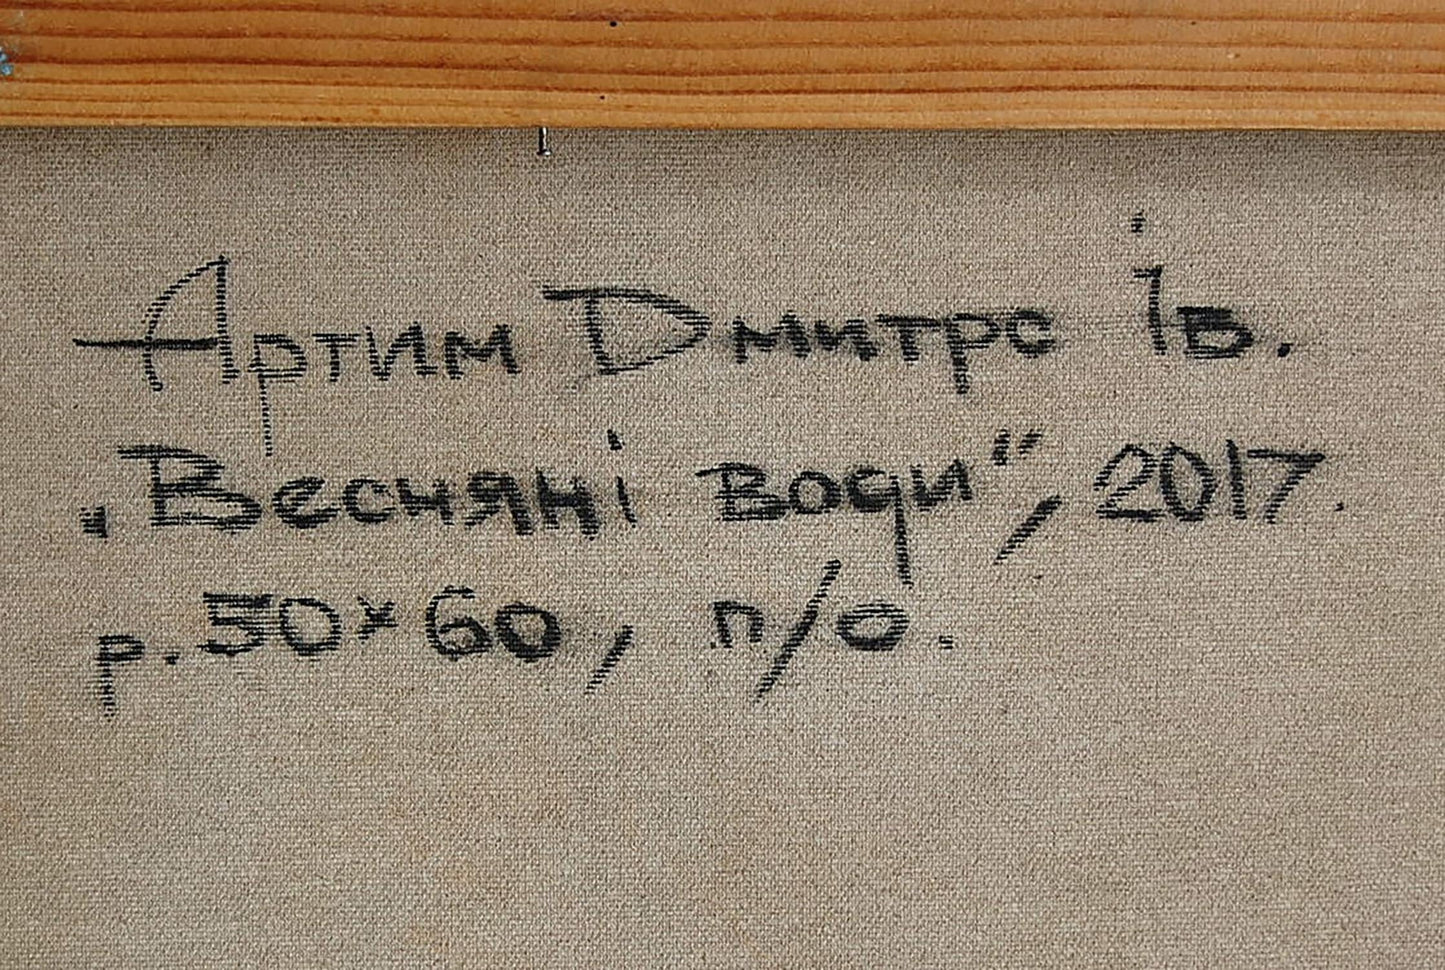 Артим Дмитро Ів.
„Весняні води“, 2017.
р. 50×60, п/о.